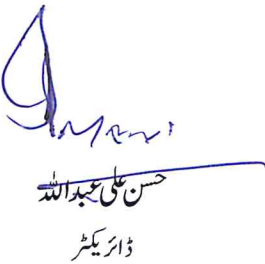 حسن علی عبداللہ
ڈائریکٹر